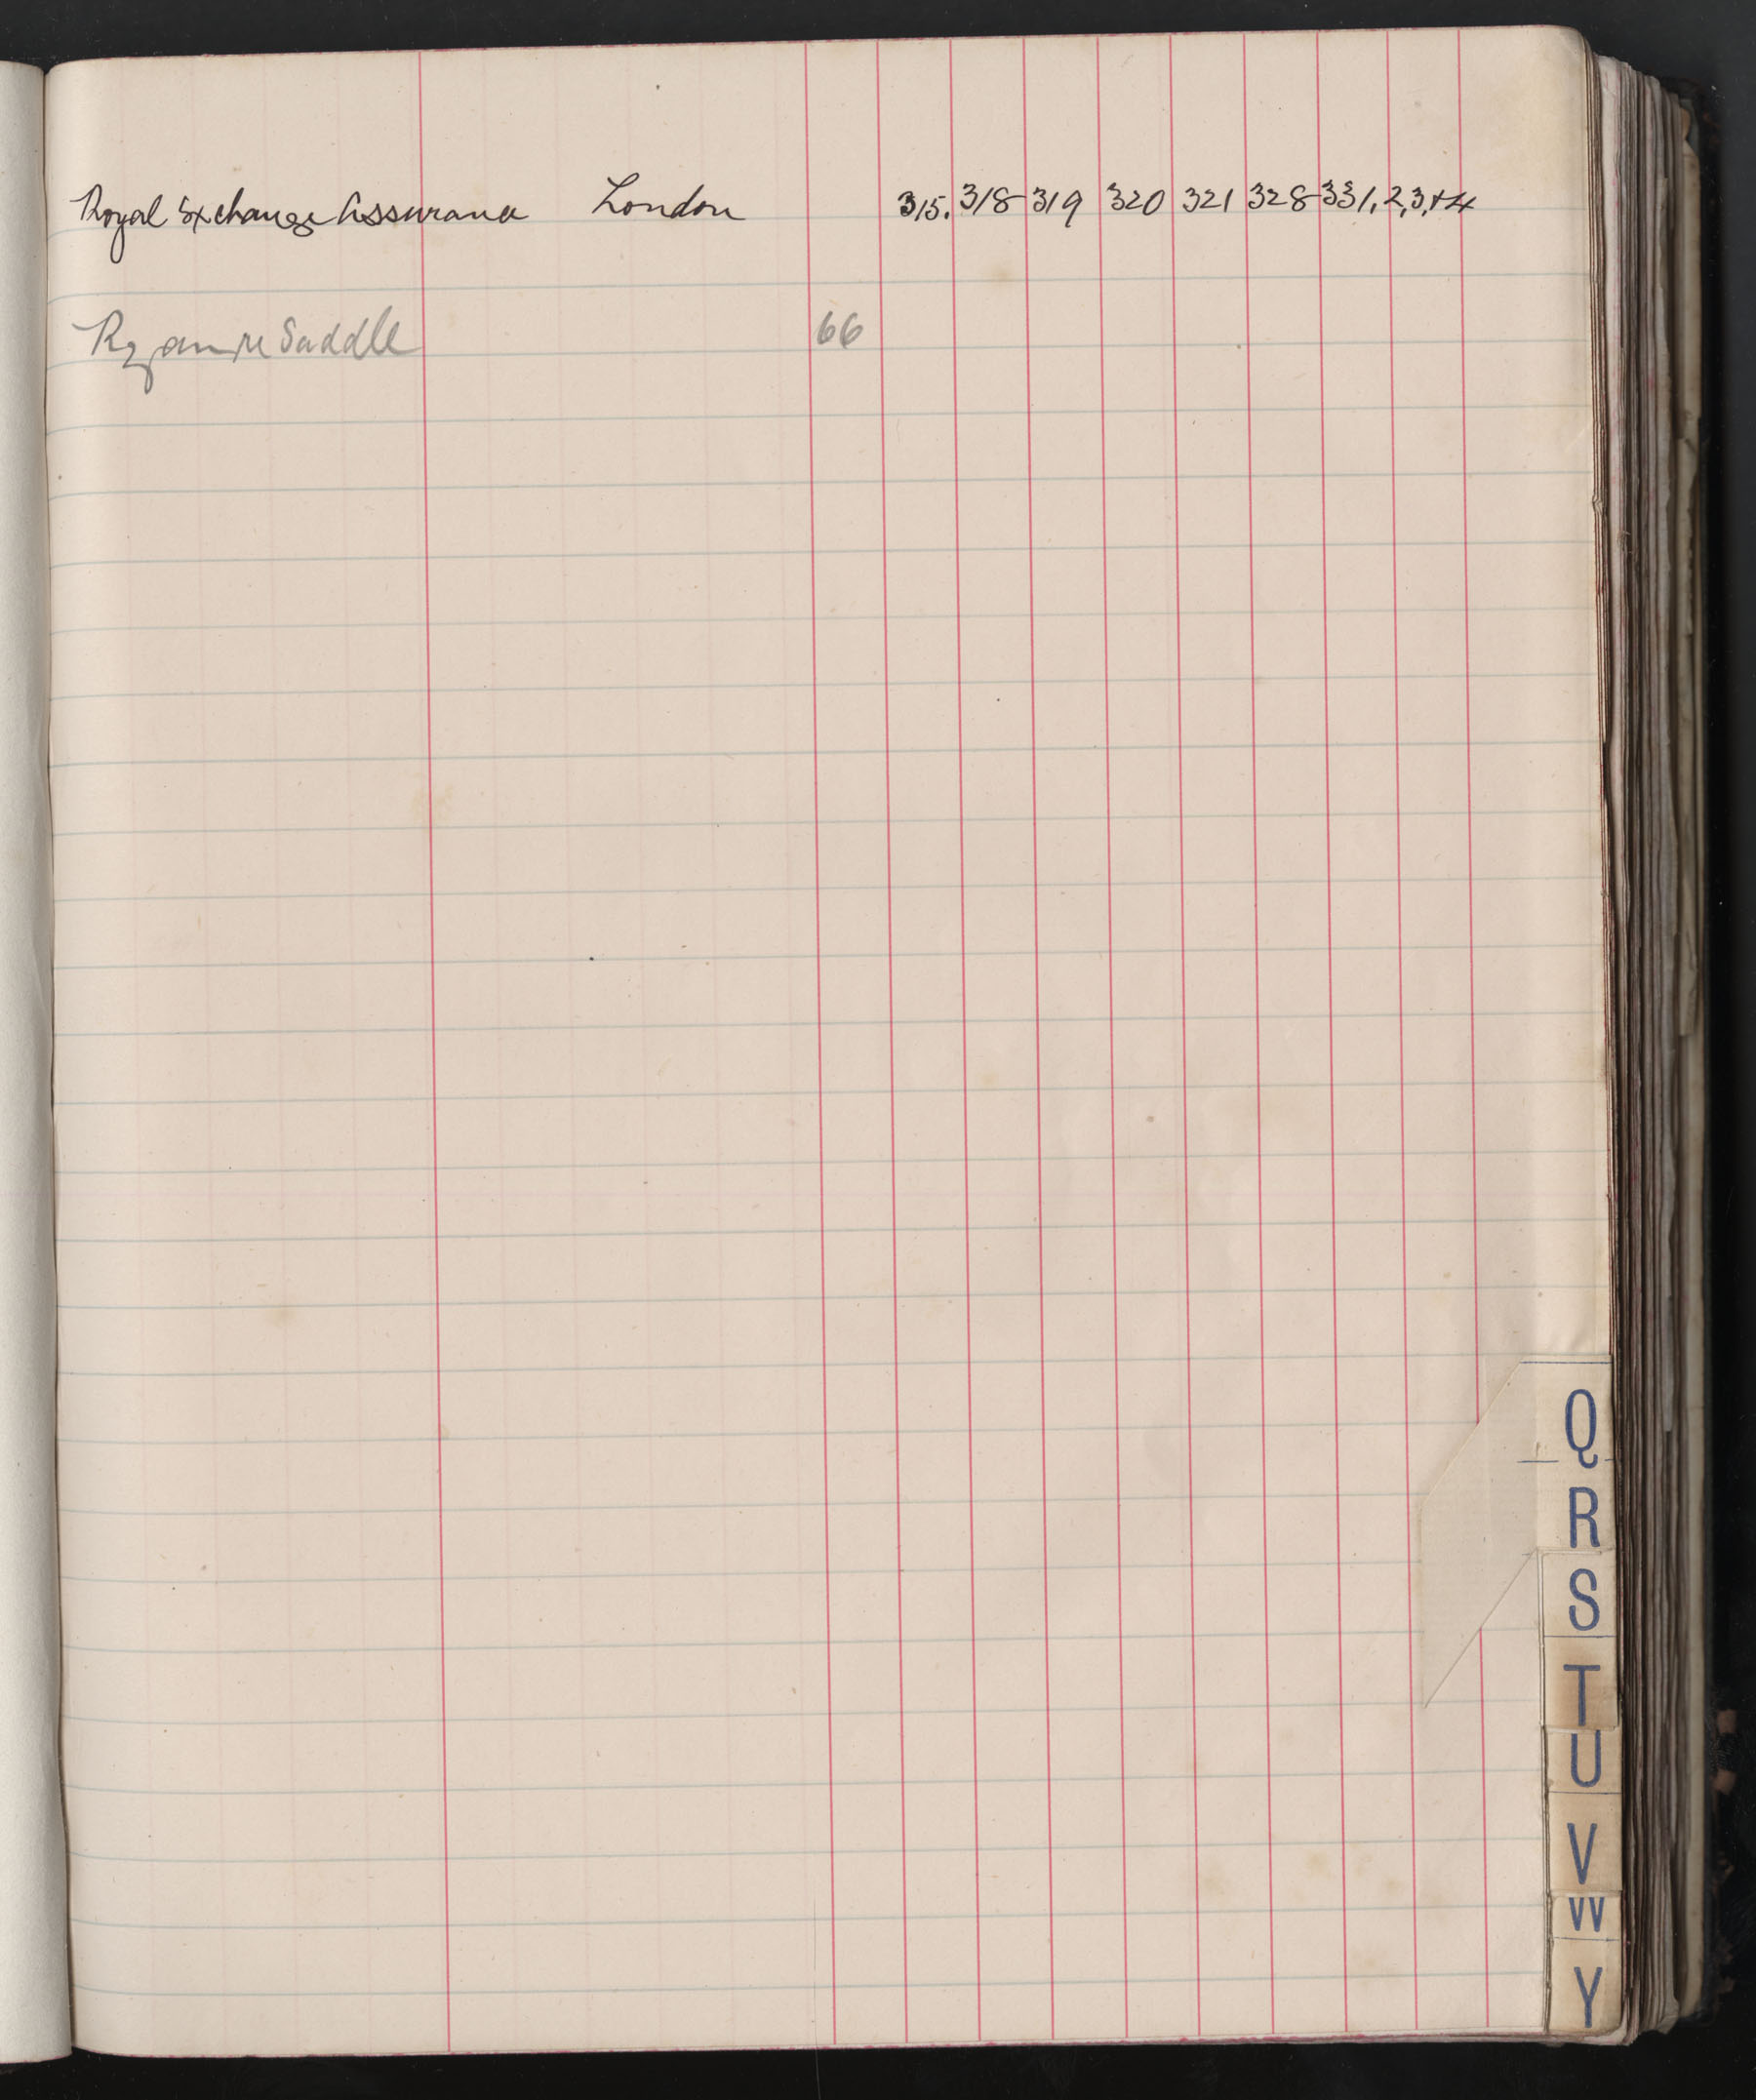 Royal Exchange Assurance London 315. 318 319 320 321 328 331, 2, 3, + 4
Saddle 66
Q
R
S
T
U
V
W
Y